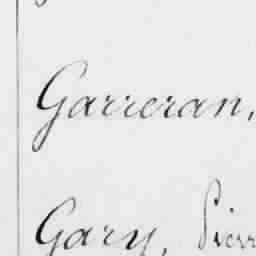 Garreran,
Gary, Pierr